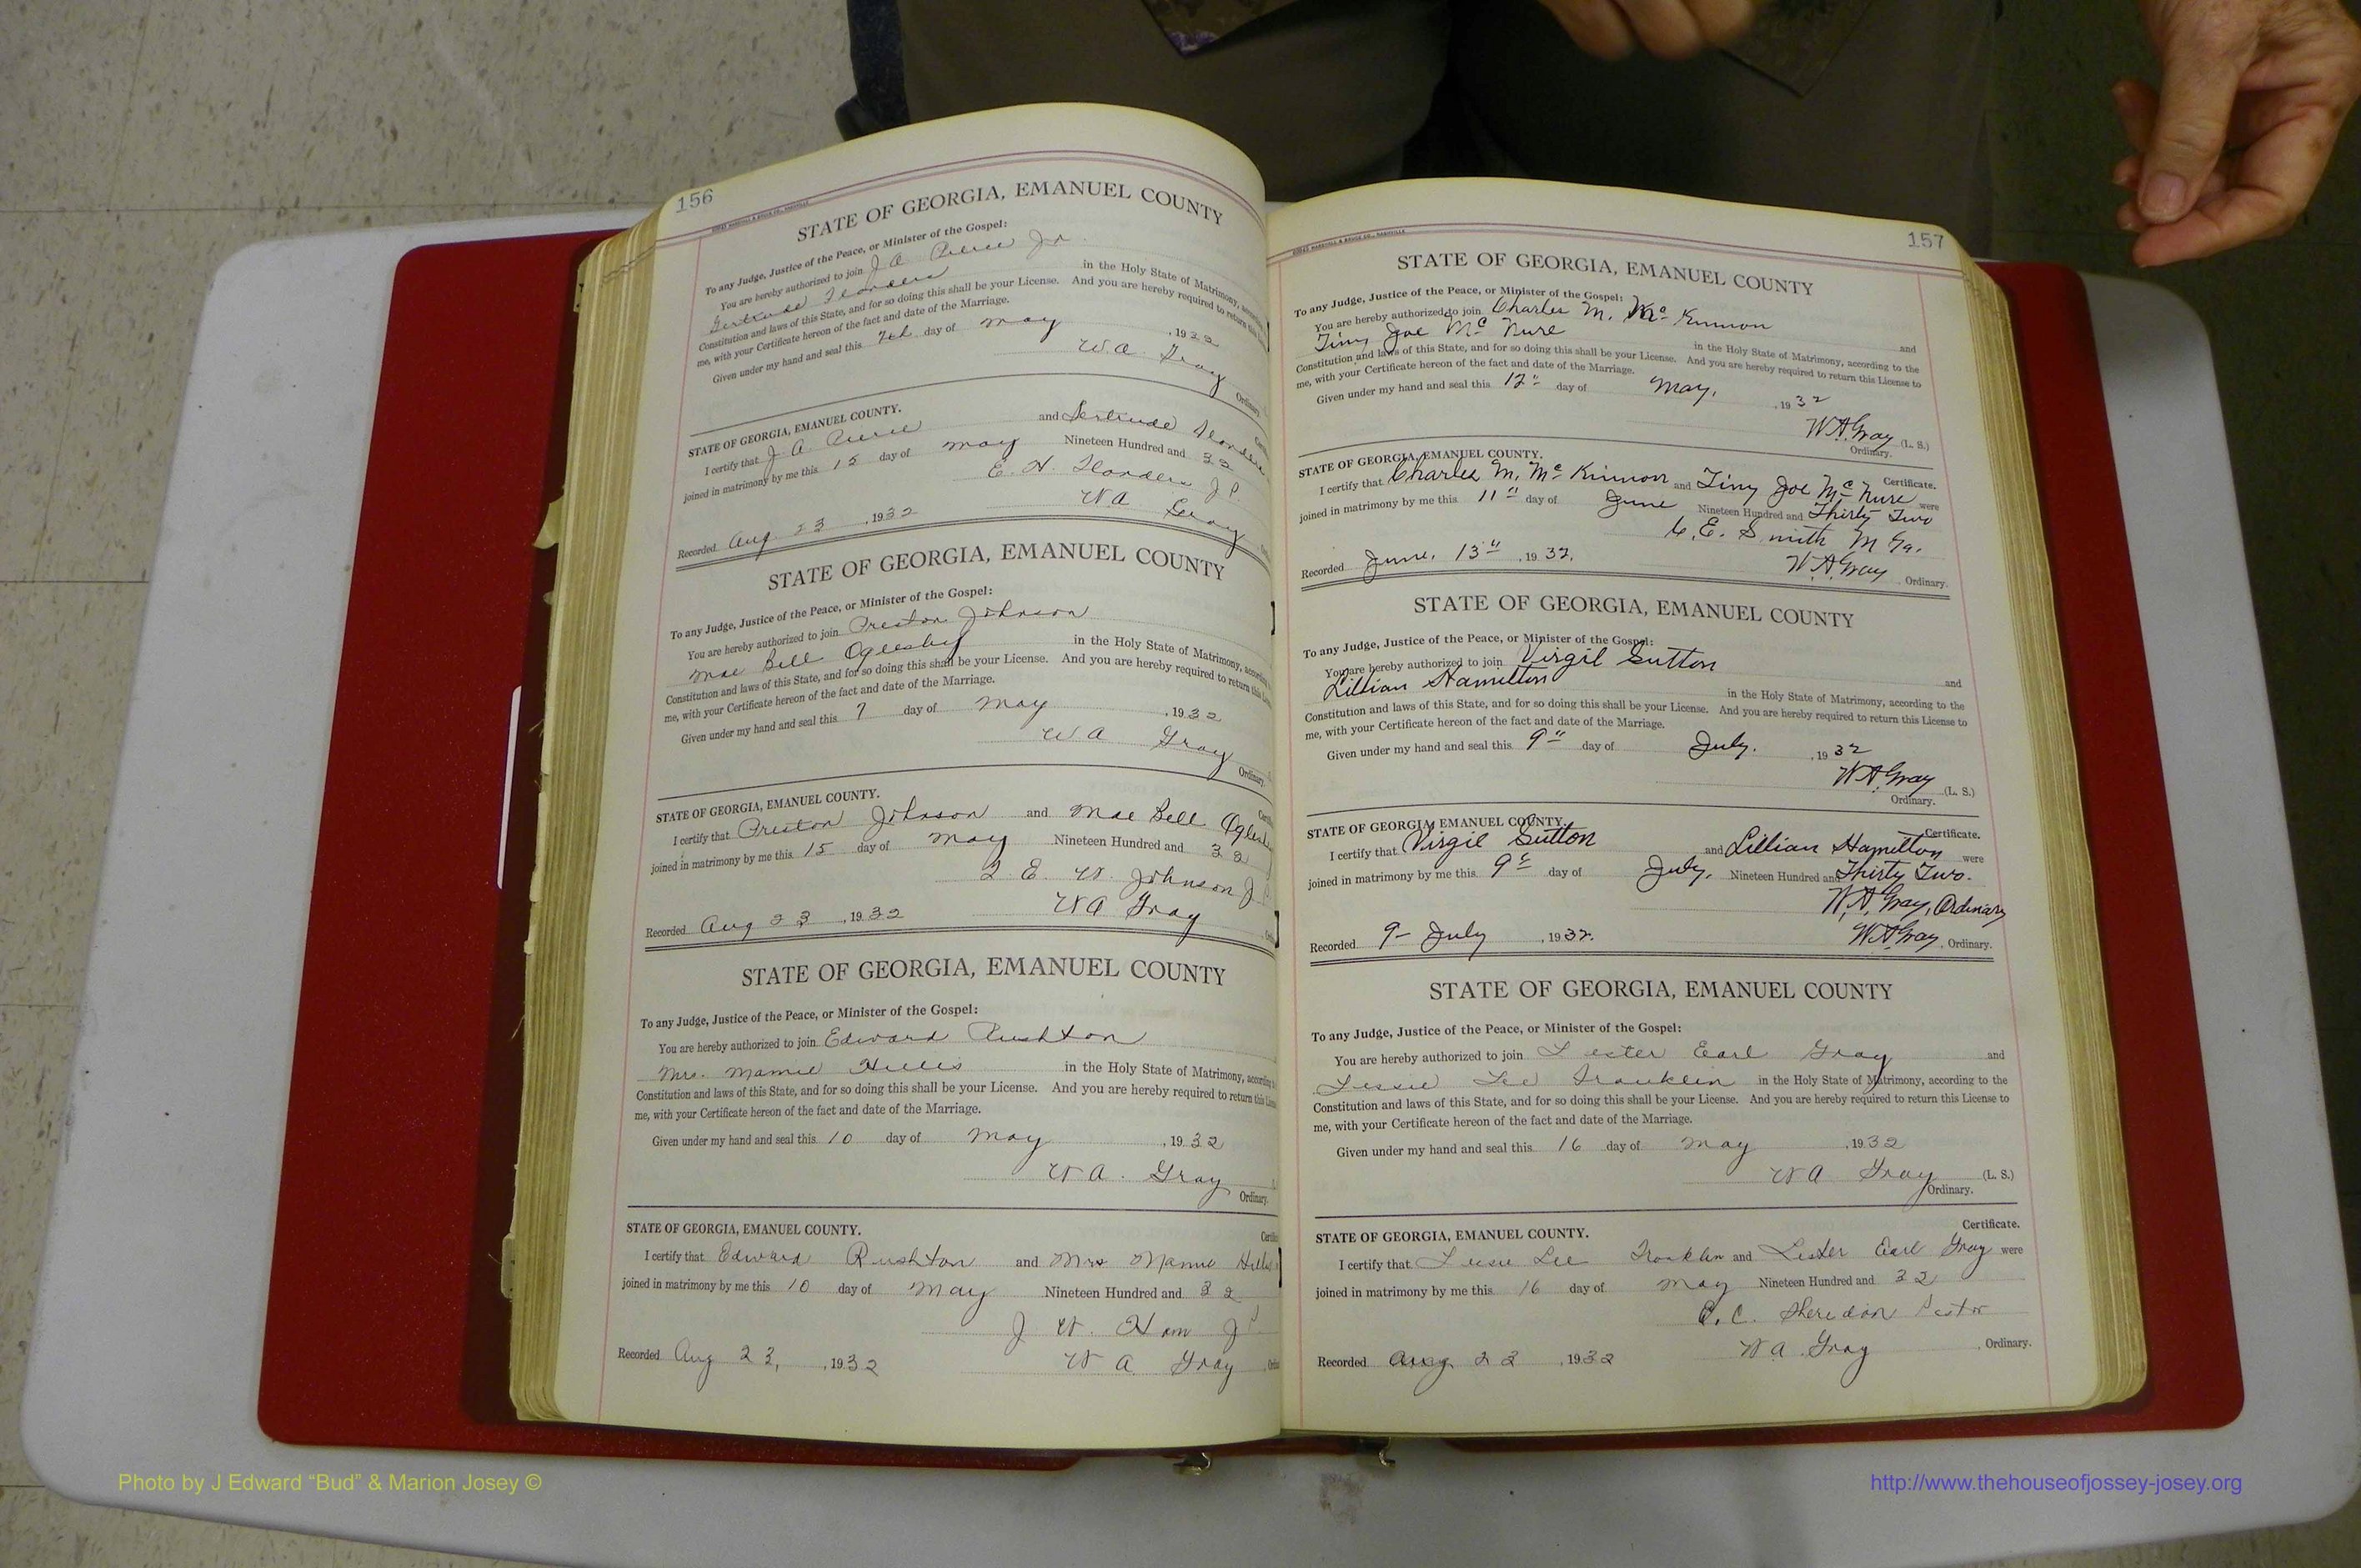 156
STATE OF GEORGIA, EMANUEL COUNTY
To any Judge, Justice of the Peace, or Minister of the Gospel:
You are hereby authorized to join J. A. Pierce Jr.
Gertrude Flanders in the Holy State of Matrimony,
Constitution and laws of this State, and for so doing this shall be your License. And you are hereby required to return
me, with your Certificate hereon of the fact and date of the Marriage.
Given under my hand and seal this 7th day of May , 1932
W. A. Gray
Ordinary
STATE OF GEORGIA, EMANUEL COUNTY.
I certify that J. A. Pierce and Gertrude Flanders
joined in matrimony by me this 15 day of May Nineteen Hundred and 32
E. H. Flanders J P.
Recorded Aug. 23 , 1932 W A Gray
STATE OF GEORGIA, EMANUEL COUNTY
To any Judge, Justice of the Peace, or Minister of the Gospel:
You are hereby authorized to join Preston Johnson
Mae Bell Oglesby in the Holy State of Matrimony, according
Constitution and laws of this State, and for so doing this shall be your License. And you are hereby required to return this
me, with your Certificate hereon of the fact and date of the Marriage.
Given under my hand and seal this 7 day of May , 1932
W A Gray
Ordinary.
STATE OF GEORGIA, EMANUEL COUNTY.
I certify that Preston Johnson and Mae Bell Oglesb
joined in matrimony by me this 15 day of May Nineteen Hundred and 32
E. W. Johnson J
Recorded Aug 23 , 1932 W A Gray
STATE OF GEORGIA, EMANUEL COUNTY
To any Judge, Justice of the Peace, or Minister of the Gospel:
You are hereby authorized to join Edward Rushton
Mrs. Mamie Hillis in the Holy State of Matrimony, according
Constitution and laws of this State, and for so doing this shall be your License. And you are hereby required to return this
me, with your Certificate hereon of the fact and date of the Marriage.
Given under my hand and seal this 10 day of May , 1932
W A. Gray
Ordinary.
STATE OF GEORGIA, EMANUEL COUNTY.
I certify that Edward Rushton and Mrs Mamie Hillis
joined in matrimony by me this 10 day of May Nineteen Hundred and 32
J W. Ham J P
Recorded Aug 23, , 1932 W A. Gray
157
STATE OF GEORGIA, EMANUEL COUNTY
To any Judge, Justice of the Peace, or Minister of the Gospel:
You are hereby authorized to join Charles M. Mc Kinnon and
Tiny Joe Mc Nure in the Holy State of Matrimony, according to the
Constitution and laws of this State, and for so doing this shall be your License. And you are hereby required to return this License to
me, with your Certificate hereon of the fact and date of the Marriage.
Given under my hand and seal this 12" day of May, , 1932
W.A. Gray (L. S.)
Ordinary.
STATE OF GEORGIA, EMANUEL COUNTY. Certificate.
I certify that Charles M. Mc Kinnon and Tiny Joe Mc Nure were
joined in matrimony by me this 11" day of June Nineteen Hundred and Thirty Two
E. Smith
Recorded June. 13" , 1932. W.A. Gray Ordinary.
STATE OF GEORGIA, EMANUEL COUNTY
To any Judge, Justice of the Peace, or Minister of the Gospel:
You are hereby authorized to join Virgil Sutton and
Lillian Hamilton in the Holy State of Matrimony, according to the
Constitution and laws of this State, and for so doing this shall be your License. And you are hereby required to return this License to
me, with your Certificate hereon of the fact and date of the Marriage.
Given under my hand and seal this 9" day of July. , 1932
W.A. Gray (L. S.)
Ordinary.
STATE OF GEORGIA, EMANUEL COUNTY. Certificate.
I certify that Virgil Sutton and Lillian Hamilton were
joined in matrimony by me this 9" day of July, Nineteen Hundred and Thirty Two.
W.A. Gray, Ordinary
Recorded 9- July , 1932. W.A. Gray , Ordinary.
STATE OF GEORGIA, EMANUEL COUNTY
To any Judge, Justice of the Peace, or Minister of the Gospel:
You are hereby authorized to join Lester Earl Gray and
Lessie Lee Franklin in the Holy State of Matrimony, according to the
Constitution and laws of this State, and for so doing this shall be your License. And you are hereby required to return this License to
me, with your Certificate hereon of the fact and date of the Marriage.
Given under my hand and seal this 16 day of May , 1932
W A Gray (L. S.)
Ordinary.
STATE OF GEORGIA, EMANUEL COUNTY. Certificate.
I certify that Lessie Lee Franklin and Lester Earl Gray were
joined in matrimony by me this 16 day of May Nineteen Hundred and 32
C. C. Sheridan Pastor
Recorded Aug. 23 , 1932 W a. Gray , Ordinary.
Photo by J Edward “Bud” & Marion Josey ©
http://www.thehouseofjossey-josey.org